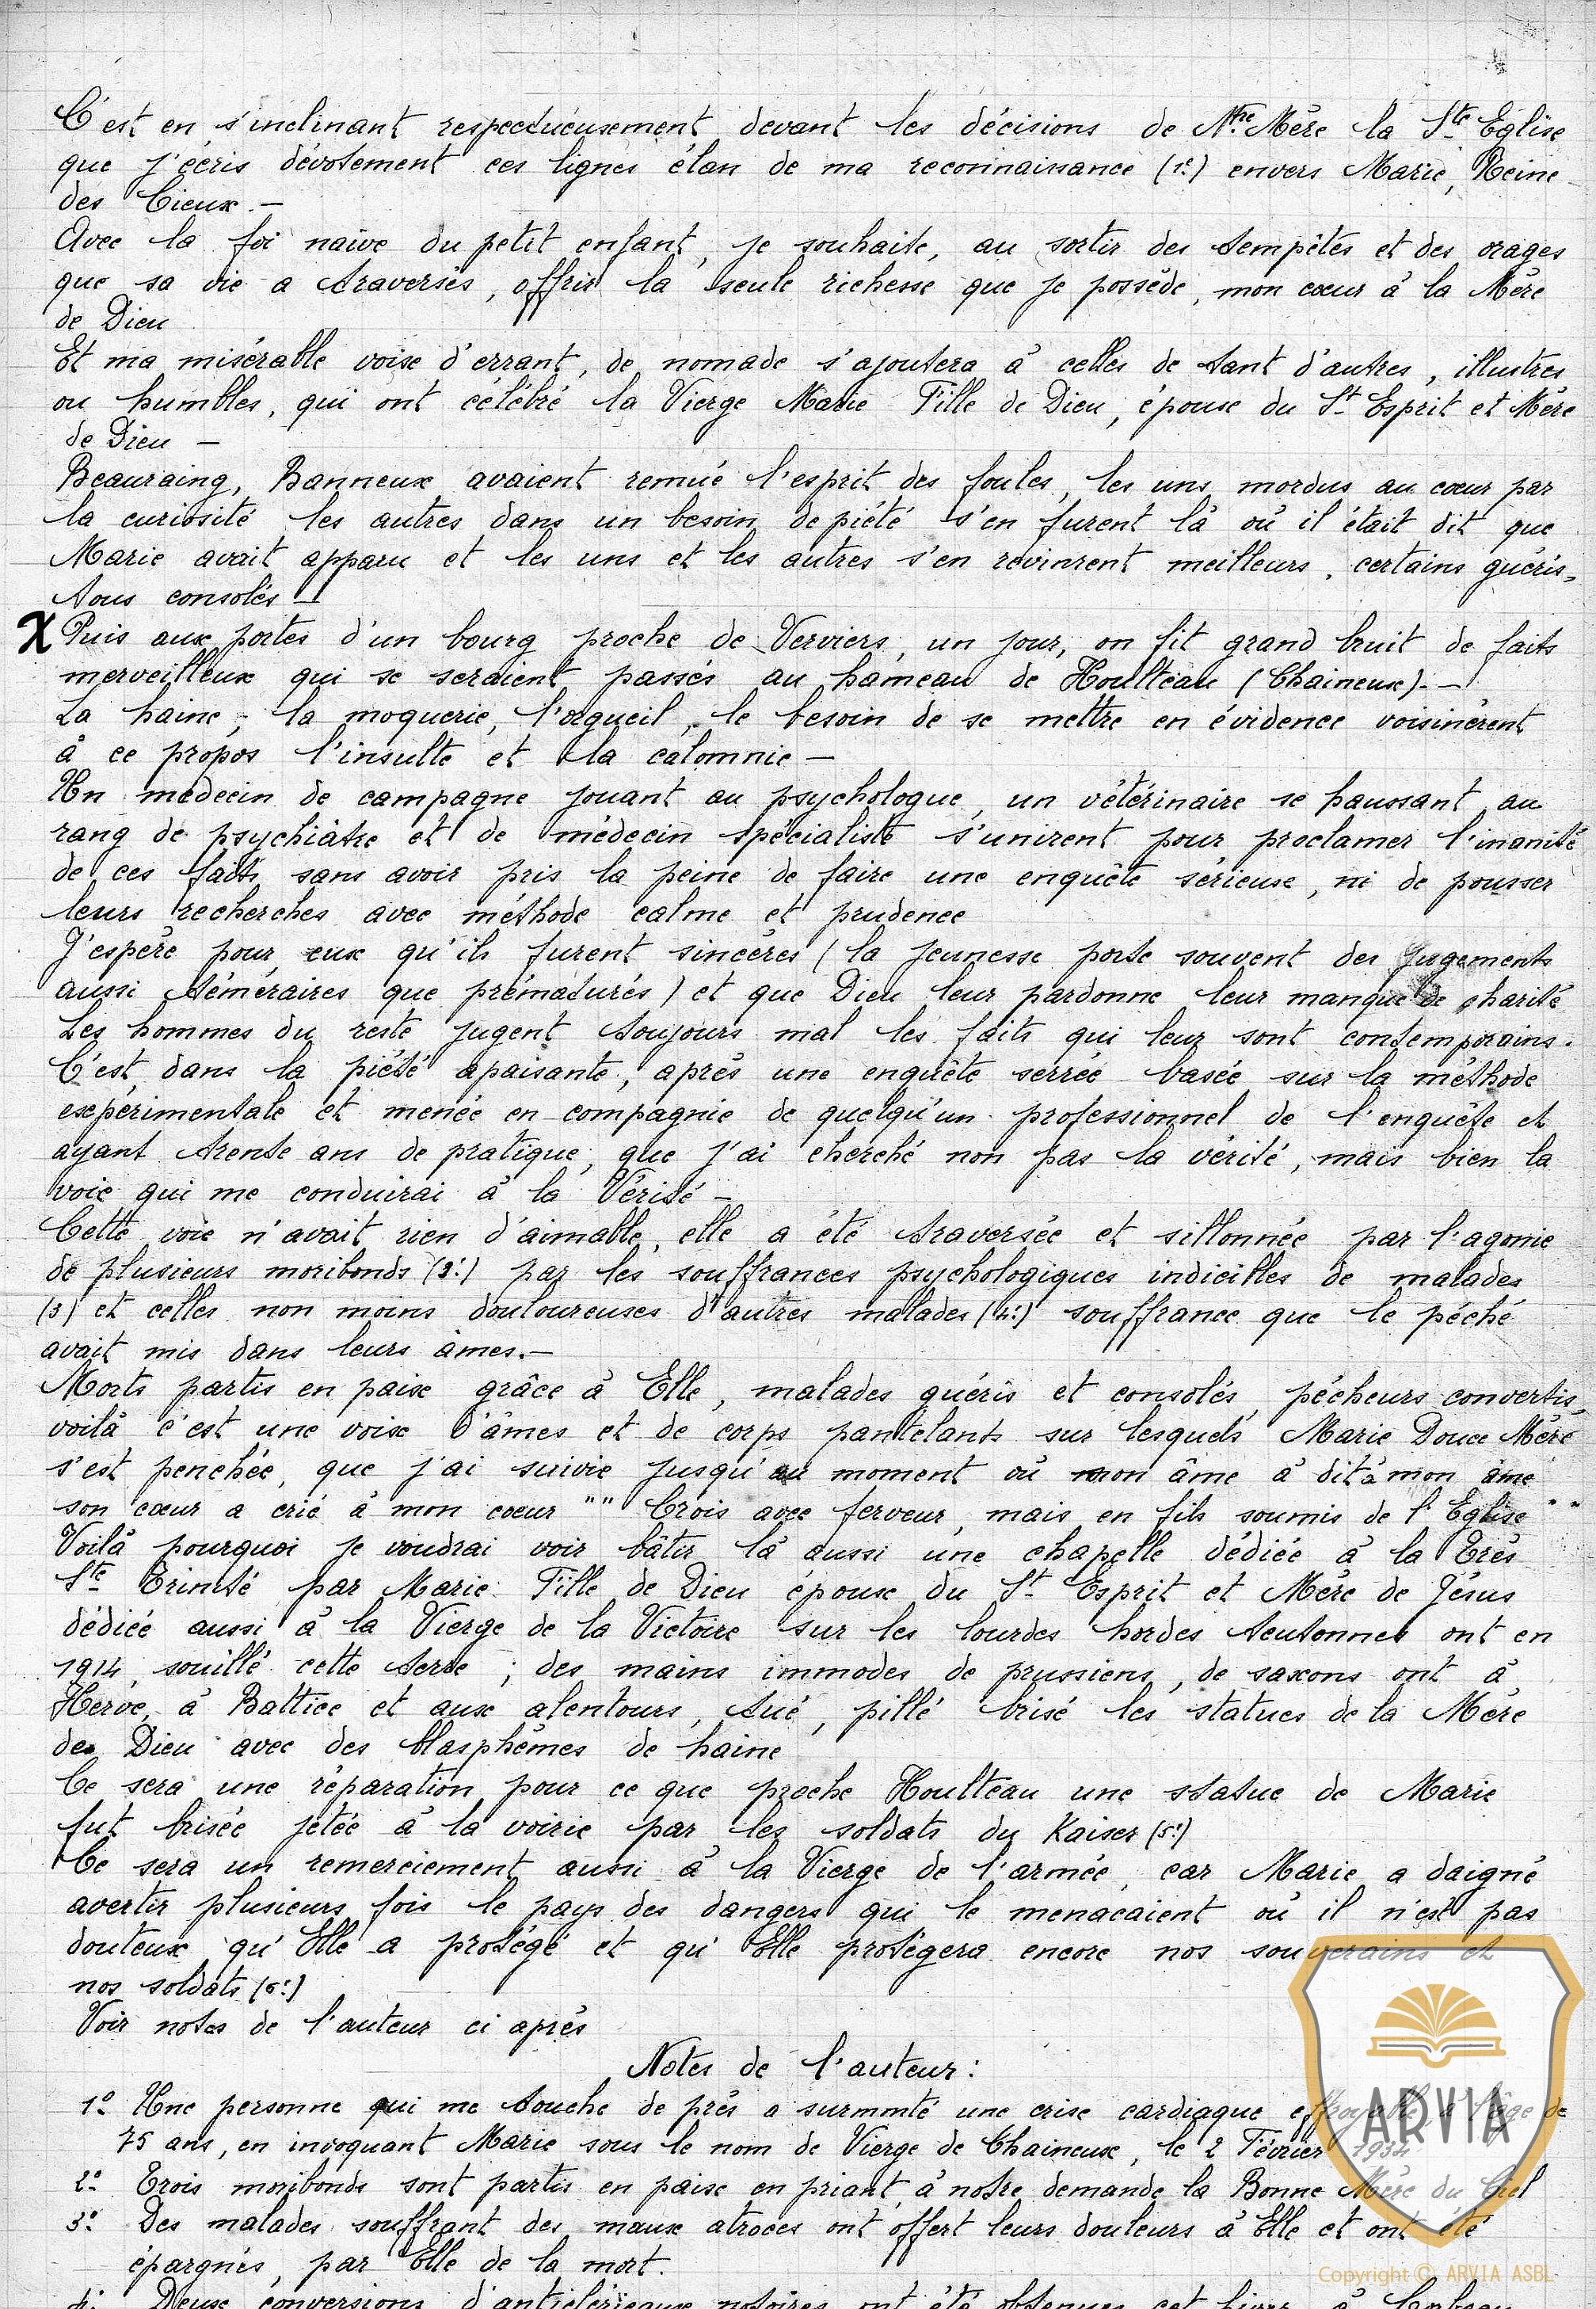 C'est en s'inclinant respectueusement devant les décisions de Ntre Mère la Ste Eglise
que j'écris dévotement ces lignes élan de ma reconnaissance (1°) envers Marie, Reine
des Cieux. –
Avec la foi naïve du petit enfant, je souhaite, au sortir des tempêtes et des orages
que sa vie a traversés, offrir la seule richesse que je possède, mon cœur à la Mère
de Dieu
Et ma misérable voix d'errant, de nomade s'ajoutera à celles de tant d'autres, illustres
ou humbles, qui ont célébré la Vierge Marie Fille de Dieu, épouse du St Esprit et Mère
de Dieu –
Beauraing, Banneux avaient remué l'esprit des foules, les uns mordus au cœur par
la curiosité les autres dans un besoin de piété s'en furent là où il était dit que
Marie avait apparu et les uns et les autres s'en revinrent meilleurs, certains guéris,
tous consolés –
X Puis aux portes d'un bourg proche de Verviers, un jour, on fit grand bruit de faits
merveilleux qui se seraient passés au hameau de Houlteau (Chaineux). –
La haine, la moquerie, l'orgueil, le besoin de se mettre en évidence voisinèrent
à ce propos l'insulte et la calomnie –
Un médecin de campagne jouant au psychologue, un vétérinaire se haussant au
rang de psychiâtre et de médecin spécialiste s'unirent pour proclamer l'inanité
de ces faits sans avoir pris la peine de faire une enquête sérieuse, ni de pousser
leurs recherches avec méthode calme et prudence
J'espère pour eux qu'ils furent sincères (la jeunesse porte souvent des jugements
aussi téméraires que prématurés) et que Dieu leur pardonne leur manque de charité
Les hommes du reste jugent toujours mal les faits qui leur sont contemporains.
C'est, dans la piété apaisante, après une enquête serrée basée sur la méthode
expérimentale et menée en compagnie de quelqu'un professionnel de l'enquête et
ayant trente ans de pratique, que j'ai cherché non pas la vérité, mais bien la
voie qui me conduirai à la Vérité –
Cette voie n'avait rien d'aimable, elle a été traversée et sillonnée par l'agonie
de plusieurs moribonds (2°) par les souffrances psychologiques indicibles de malades
(3) et celles non moins douloureuses d'autres malades (4°) souffrance que le péché
avait mis dans leurs âmes. –
Morts partis en paix grâce à Elle, malades guéris et consolés, pécheurs convertis,
voilà c'est une voix d'âmes et de corps pantelants sur lesquels Marie Douce Mère
s'est penchée, que j'ai suivie jusqu'au moment où mon âme à dit à mon âme
son cœur a crié à mon cœur "" Crois avec ferveur, mais en fils soumis de l'Eglise ""
Voilà pourquoi je voudrai voir bâtir là aussi une chapelle dédiée à la Très
Ste Trinité par Marie Fille de Dieu épouse du St Esprit et Mère de Jésus
dédiée aussi à la Vierge de la Victoire sur les lourdes hordes teutonnes ont en
1914 souillé cette terre ; des mains immodes de prussiens, de saxons ont à
Herve, à Battice et aux alentours, tué, pillé brisé les statues de la Mère
de Dieu avec des blasphèmes de haine
Ce sera une réparation pour ce que proche Houlteau une statue de Marie
fut brisée jetée à la voirie par les soldats du Kaiser (5°)
Ce sera un remerciement aussi à la Vierge de l'armée, car Marie a daigné
avertir plusieurs fois le pays des dangers qui le menacaient où il n'est pas
douteux qu'Elle a protégé et qu'Elle protègera encore nos souverains et
nos soldats (6°)
Voir notes de l'auteur ci après
Notes de l'auteur :
1° Une personne qui me touche de près a surmmté une crise cardiaque effroyable, à l'âge de
75 ans, en invoquant Marie sous le nom de Vierge de Chaineux, le 2 Février 1934
2° Trois moribonds sont partis en paix en priant à notre demande la Bonne Mère du Ciel
3° Des malades souffrant des maux atroces ont offert leurs douleurs à Elle et ont été
épargnés, par Elle de la mort.
4° Deux conversions d'anticléricaux notoires ont été obtenues cet hiver à
ARVIA
Copyright © ARVIA ASBL